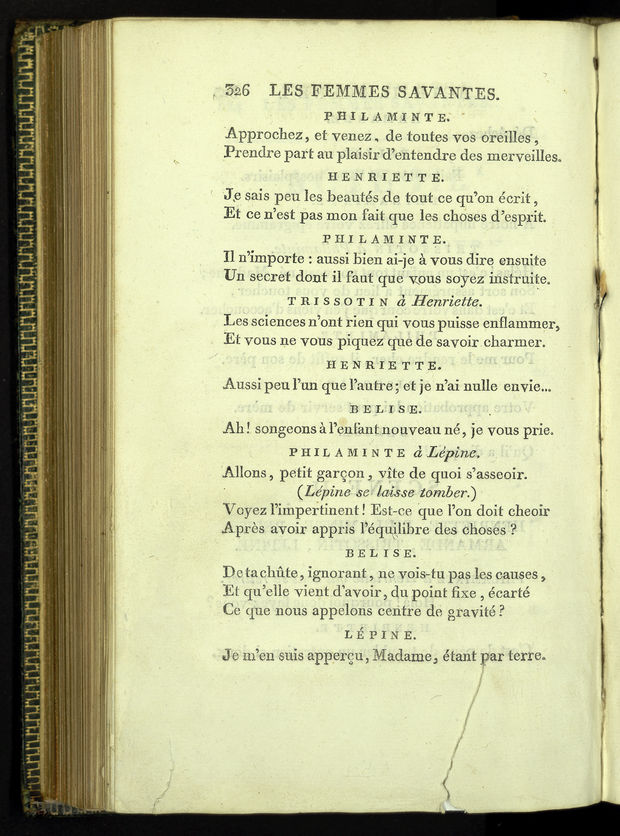 326 LES FEMMES SAVANTES.
PHILAMINTE.
Approchez, et venez, de toutes vos oreilles,
Prendre part au plaisir d'entendre des merveilles.
HENRIETTE.
Je sais peu les beautés de tout ce qu'on écrit,
Et ce n'est pas mon fait que les choses d'esprit.
PHILAMINTE.
Il n'importe : aussi bien ai-je à vous dire ensuite
Un secret dont il faut que vous soyez instruite.
TRISSOTIN à Henriette.
Les sciences n'ont rien qui vous puisse enflammer,
Et vous ne vous piquez que de savoir charmer.
HENRIETTE.
Aussi peu l'un que l'autre ; et je n'ai nulle envie...
BELISE.
Ah! songeons à l'enfant nouveau né, je vous prie.
PHILAMINTE à Lépine.
Allons, petit garçon, vîte de quoi s'asseoir.
(Lépine se laisse tomber.)
Voyez l'impertinent! Est-ce que l'on doit cheoir
Après avoir appris l'équilibre des choses ?
BELISE.
De ta chûte, ignorant, ne vois-tu pas les causes,
Et qu'elle vient d'avoir, du point fixe, écarté
Ce que nous appelons centre de gravité ?
LÉPINE.
Je m'en suis apperçu, Madame, étant par terre.